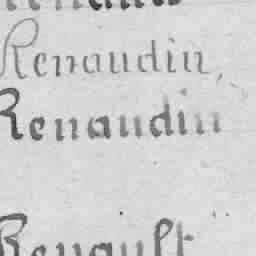 Renaudin,
Renaudin
Renault